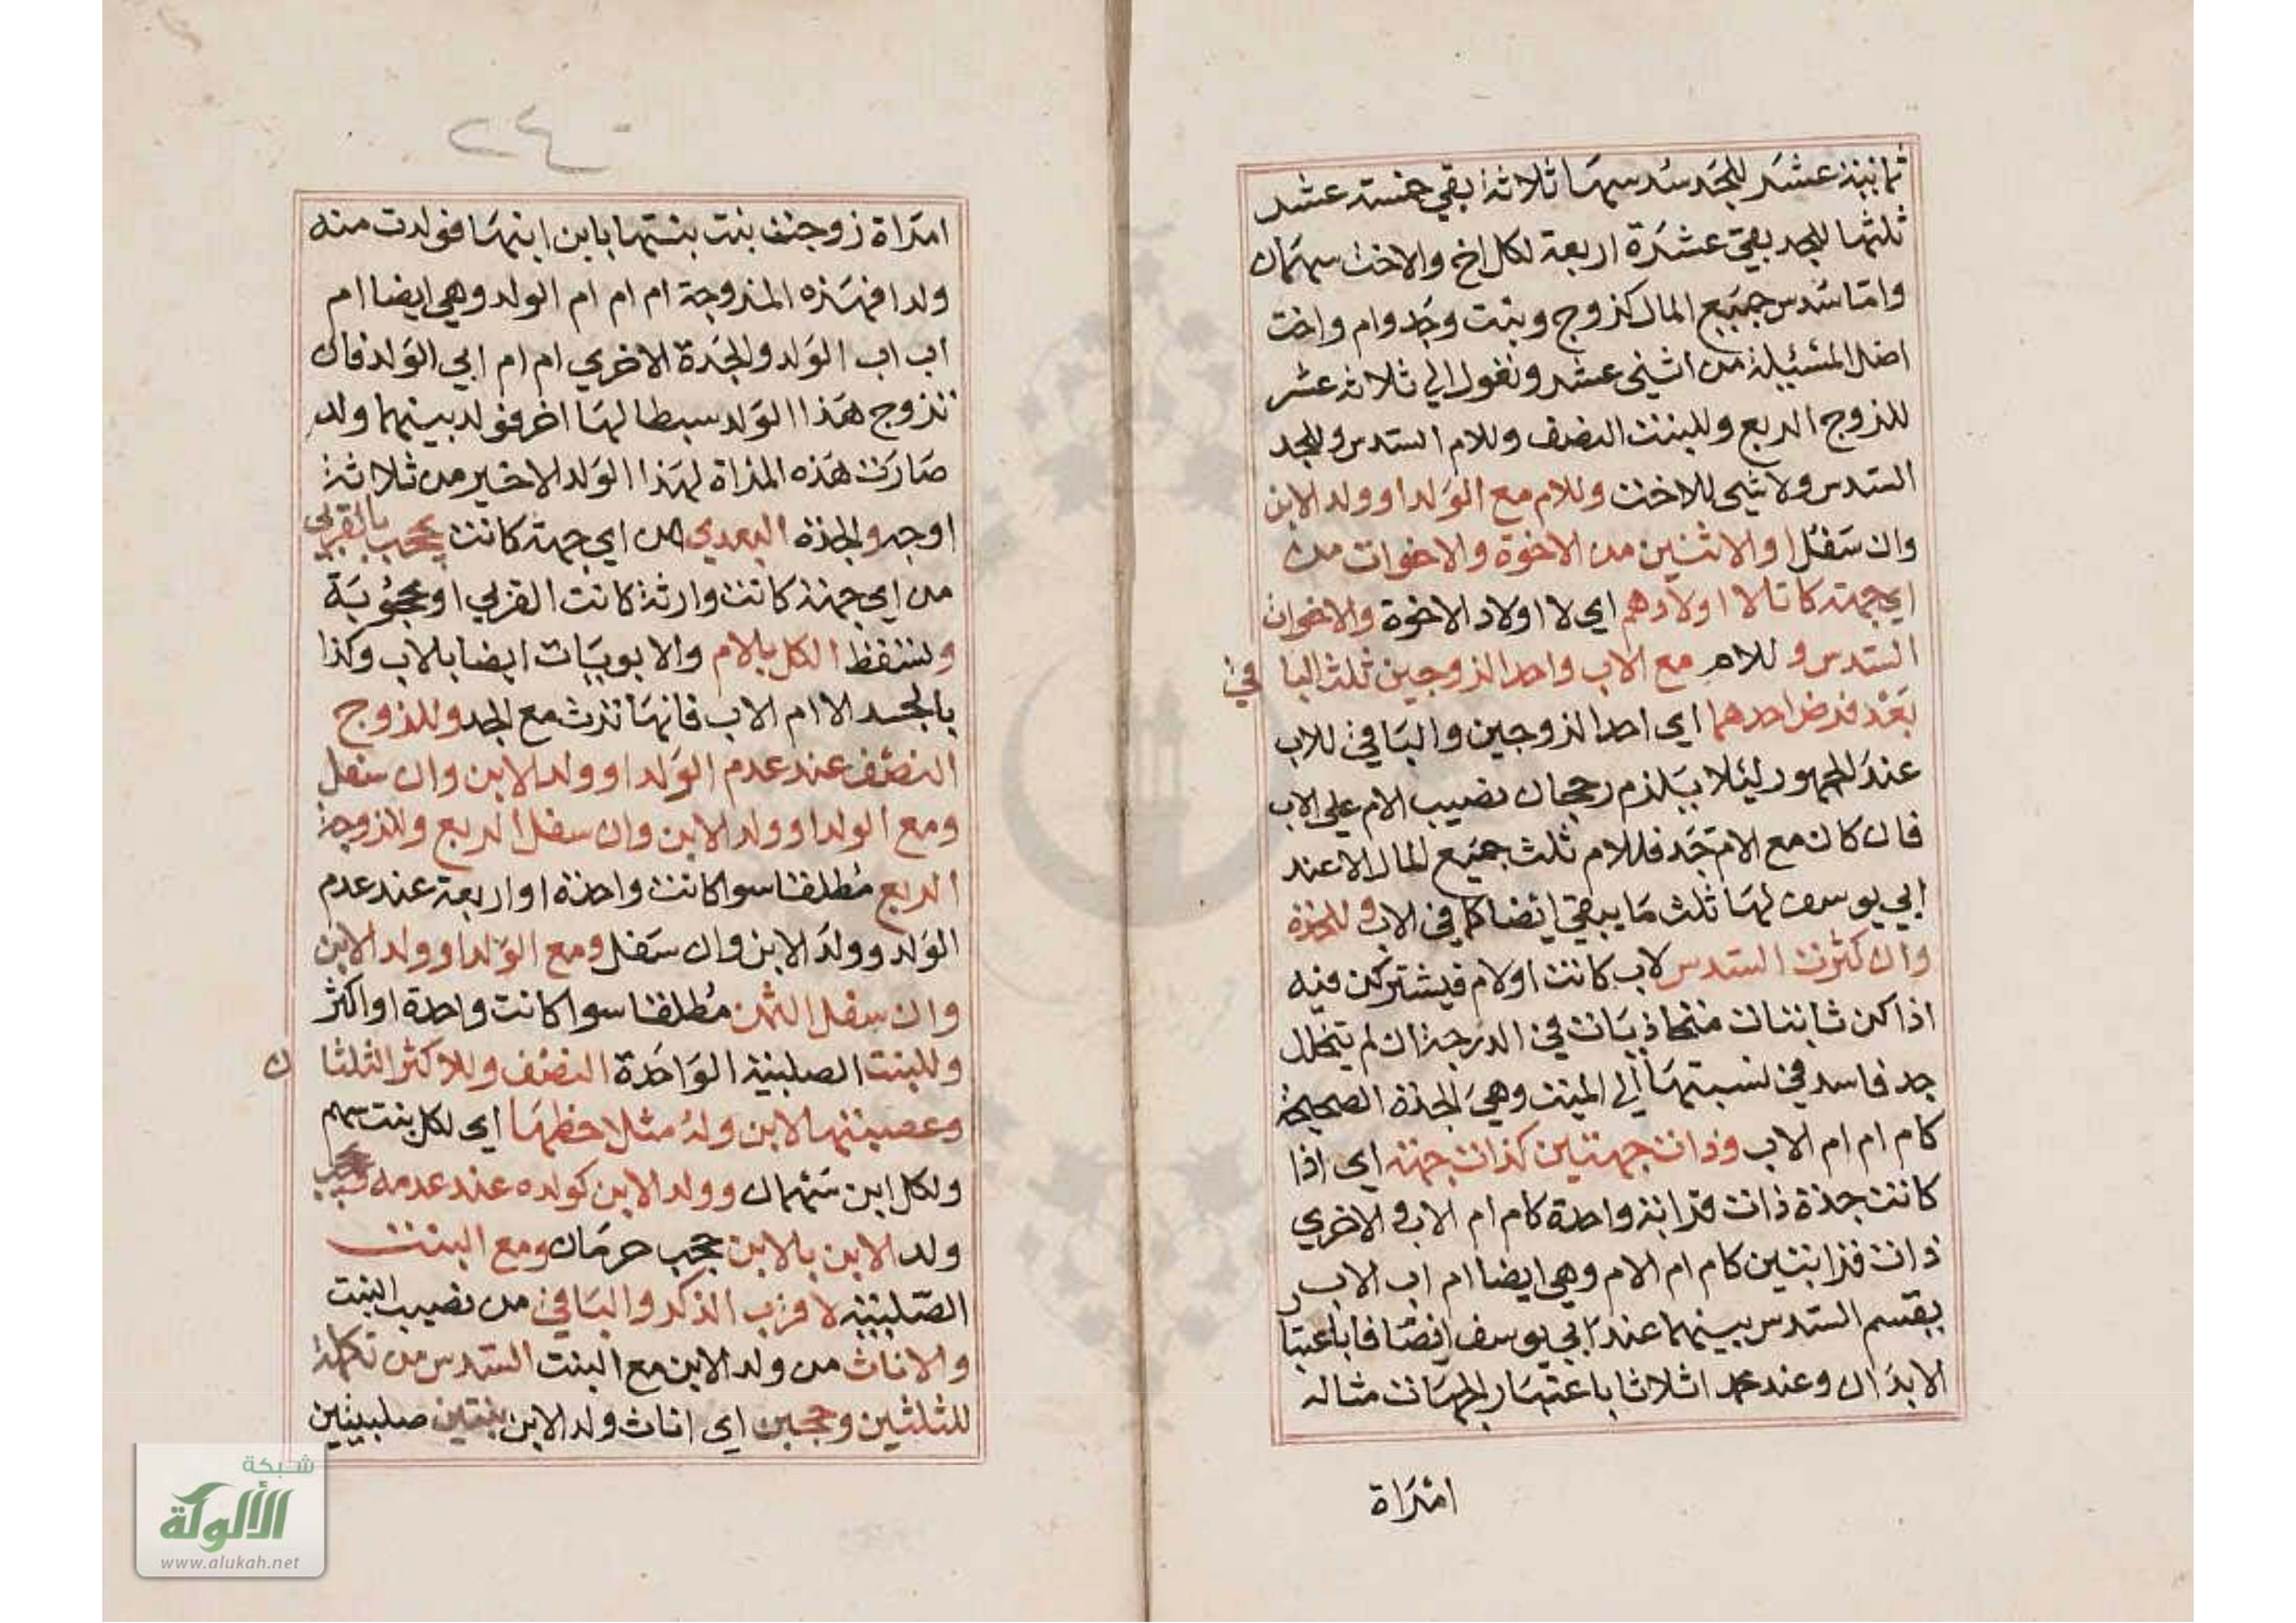 ثمانية عشر للجد سدسها ثلاثة بقي خمسة عشر
ثلثها للجد بقي عشرة اربعة لكل اخ والاخت سهمان
واما سدس جميع المال كزوج وبنت وجد وام واخت
اصل المسئيلة من اثني عشر وتعول الي ثلاثة عشر
للزوج الربع وللبنت النصف وللام السدس وللجد
السدس ولا شي للاخت وللام مع الولد او ولد الابن
وان سفل او الاثنين من الاخوة والاخوات من
اي جهة كانا لا اولادهم اي لا اولاد الاخوة والاخوات
السدس وللام مع الاب واحد الزوجين ثلث الباقي
بعد فرض احدهما اي احد الزوجين والباقي للاب
عند الجمهور ليئلا يلزم رجحان نصيب الام علي الاب
فان كان مع الام جد فللام ثلث جميع المال الا عند
ابي يوسف لها ثلث ما يبقي ايضا كما في الاب وللجدة
وان كثرت السدس لاب كانت او لام فيشتركن فيه
اذا كن ثابتات متحاذيات في الدرجة ان لم يتخلل
جد فاسد في نسبتها الي الميت وهي الجدة الصحيحة
كام ام ام الاب وذات جهتين كذات جهة اي اذا
كانت جدة ذات قرابة واحدة كام ام الاب والاخري
ذات قرابتين كام ام الام وهي ايضا ام اب الاب
يقسم السدس بينهما عند ابي يوسف انصافا باعتبار
الابدان وعند محمد اثلاثا باعتبار الجهات مثاله
امراة
٢٤
امراة زوجت بنت بنتها بابن ابنها فولدت منه
ولدا فهذه المزوجة ام ام ام الولد وهي ايضا ام
اب اب الولد والجدة الاخري ام ام ابي الولد فان
تزوج هذا الولد سبطا لها اخر فولد بينهما ولد
صارت هذه المراة لهذا الولد الاخير من ثلاثة
اوجه والجدة البعدي من اي جهة كانت يحجب بالقربي
من اي جهة كانت وارثة كانت القربي او محجوبة
وتسقط الكل بالام والابويات ايضا بالاب وكذا
بالجد الا ام الاب فانها ترث مع الجد وللزوج
النصف عند عدم الولد او ولد الابن وان سفل
ومع الولد او ولد الابن وان سفل الربع وللزوجة
الربع مطلقا سوا كانت واحدة او اربعة عند عدم
الولد وولد الابن وان سفل ومع الولد او ولد الابن
وان سفل الثمن مطلقا سوا كانت واحدة او اكثر
وللبنت الصلبية الواحدة النصف وللاكثر الثلثان
وعصبتها الابن وله مثلا حظها اي لكل بنت سهم
ولكل ابن سهمان وولد الابن كولده عند عدمه ويحجب
ولد الابن بالابن حجب حرمان ومع البنت
الصلبية لاقرب الذكر والباقي من نصيب البنت
والاناث من ولد الابن مع البنت السدس من تكملة
للثلثين وحجبن اي اناث ولد الابن بنتين صلبيتين
شبكة
الألوكة
www.alukah.net